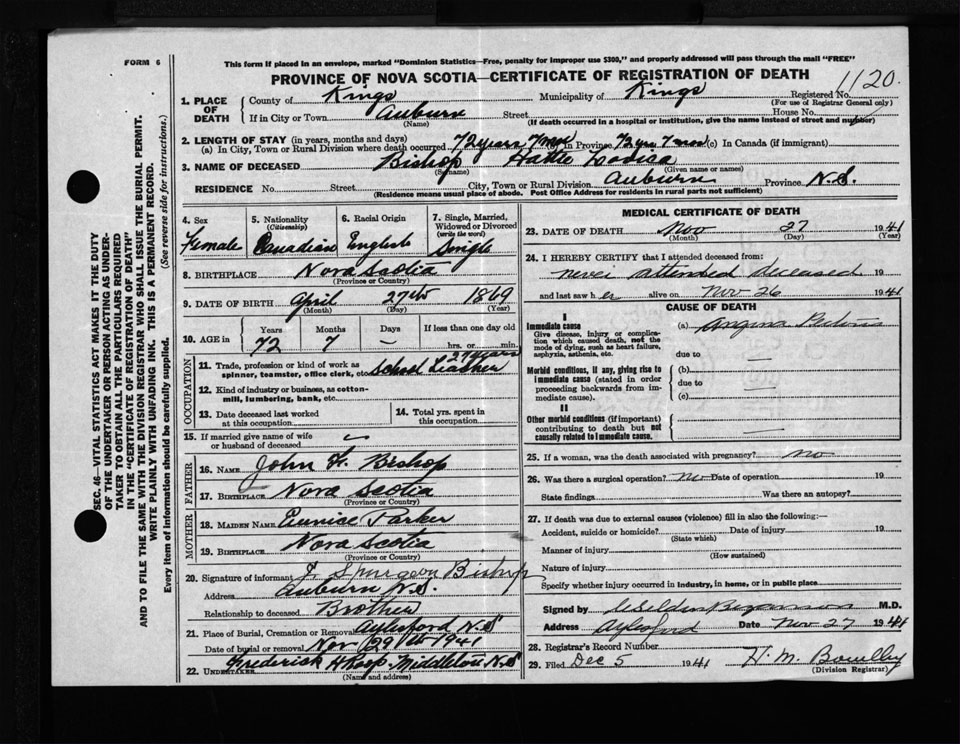 FORM 6
This form if placed in an envelope, marked "Dominion Statistics—Free, penalty for improper use $300," and properly addressed will pass through the mail "FREE"
PROVINCE OF NOVA SCOTIA—CERTIFICATE OF REGISTRATION OF DEATH
1120
1. PLACE OF DEATH
County of Kings Municipality of Kings Registered No.
(For use of Registrar General only)
If in City or Town Auburn Street House No.
(Name) (If death occurred in a hospital or institution, give the name instead of street and number)
2. LENGTH OF STAY (in years, months and days)
(a) In City, Town or Rural Division where death occurred 72 years 7 mos In Province 72 yrs 7 mos (c) In Canada (if immigrant)
3. NAME OF DECEASED Bishop Hattie
(Surname) (Given name or names)
RESIDENCE No. Street City, Town or Rural Division Auburn Province N.S.
(Residence means usual place of abode. Post Office Address for residents in rural parts not sufficient)
4. Sex Female
5. Nationality (Citizenship) Canadian
6. Racial Origin English
7. Single, Married, Widowed or Divorced (write the word) Single
8. BIRTHPLACE Nova Scotia
(Province or Country)
9. DATE OF BIRTH April 27th 1869
(Month) (Day) (Year)
10. AGE in Years Months Days If less than one day old
72 7 — hrs. or min.
OCCUPATION
11. Trade, profession or kind of work as spinner, teamster, office clerk, etc. School Teacher 27 years
12. Kind of industry or business, as cotton-mill, lumbering, bank, etc.
13. Date deceased last worked at this occupation
14. Total yrs. spent in this occupation
15. If married give name of wife or husband of deceased
FATHER
16. NAME John H. Bishop
17. BIRTHPLACE Nova Scotia
(Province or Country)
MOTHER
18. MAIDEN NAME Eunice Parker
19. BIRTHPLACE Nova Scotia
(Province or Country)
20. Signature of informant J. Spurgeon Bishop
Address Auburn N.S.
Relationship to deceased Brother
21. Place of Burial, Cremation or Removal Aylesford N.S
Date of burial or removal Nov 29th 1941
22. UNDERTAKER Frederick Middleton N.S
(Name and address)
MEDICAL CERTIFICATE OF DEATH
23. DATE OF DEATH Nov 27 1941
(Month) (Day) (Year)
24. I HEREBY CERTIFY that I attended deceased from:
never attended deceased 19
and last saw her alive on Nov 26 1941
CAUSE OF DEATH
I
Immediate cause (a) Angina Pectoris
Give disease, injury or complication which caused death, not the mode of dying, such as heart failure, asphyxia, asthenia, etc.
due to —
Morbid conditions, if any, giving rise to immediate cause (stated in order proceeding backwards from immediate cause).
(b)
due to —
(c)
II
Other morbid conditions (if important) contributing to death but not causally related to immediate cause. —
25. If a woman, was the death associated with pregnancy? no
26. Was there a surgical operation? no Date of operation 19
State findings Was there an autopsy?
27. If death was due to external causes (violence) fill in also the following:—
Accident, suicide or homicide? Date of injury 19
(State which)
Manner of injury
(How sustained)
Nature of injury
Specify whether injury occurred in industry, in home, or in public place
Signed by M.D.
Address Aylesford Date Nov 27 1941
28. Registrar's Record Number
29. Filed Dec 5 1941 H. M.
(Division Registrar)
SEC. 46—VITAL STATISTICS ACT MAKES IT THE DUTY
OF THE UNDERTAKER OR PERSON ACTING AS UNDER-
TAKER TO OBTAIN ALL THE PARTICULARS REQUIRED
IN THE "CERTIFICATE OF REGISTRATION OF DEATH"
AND TO FILE THE SAME WITH THE DIVISION REGISTRAR WHO SHALL ISSUE THE BURIAL PERMIT.
WRITE PLAINLY WITH UNFADING INK. THIS IS A PERMANENT RECORD.
Every item of information should be carefully supplied. (See reverse side for instructions.)